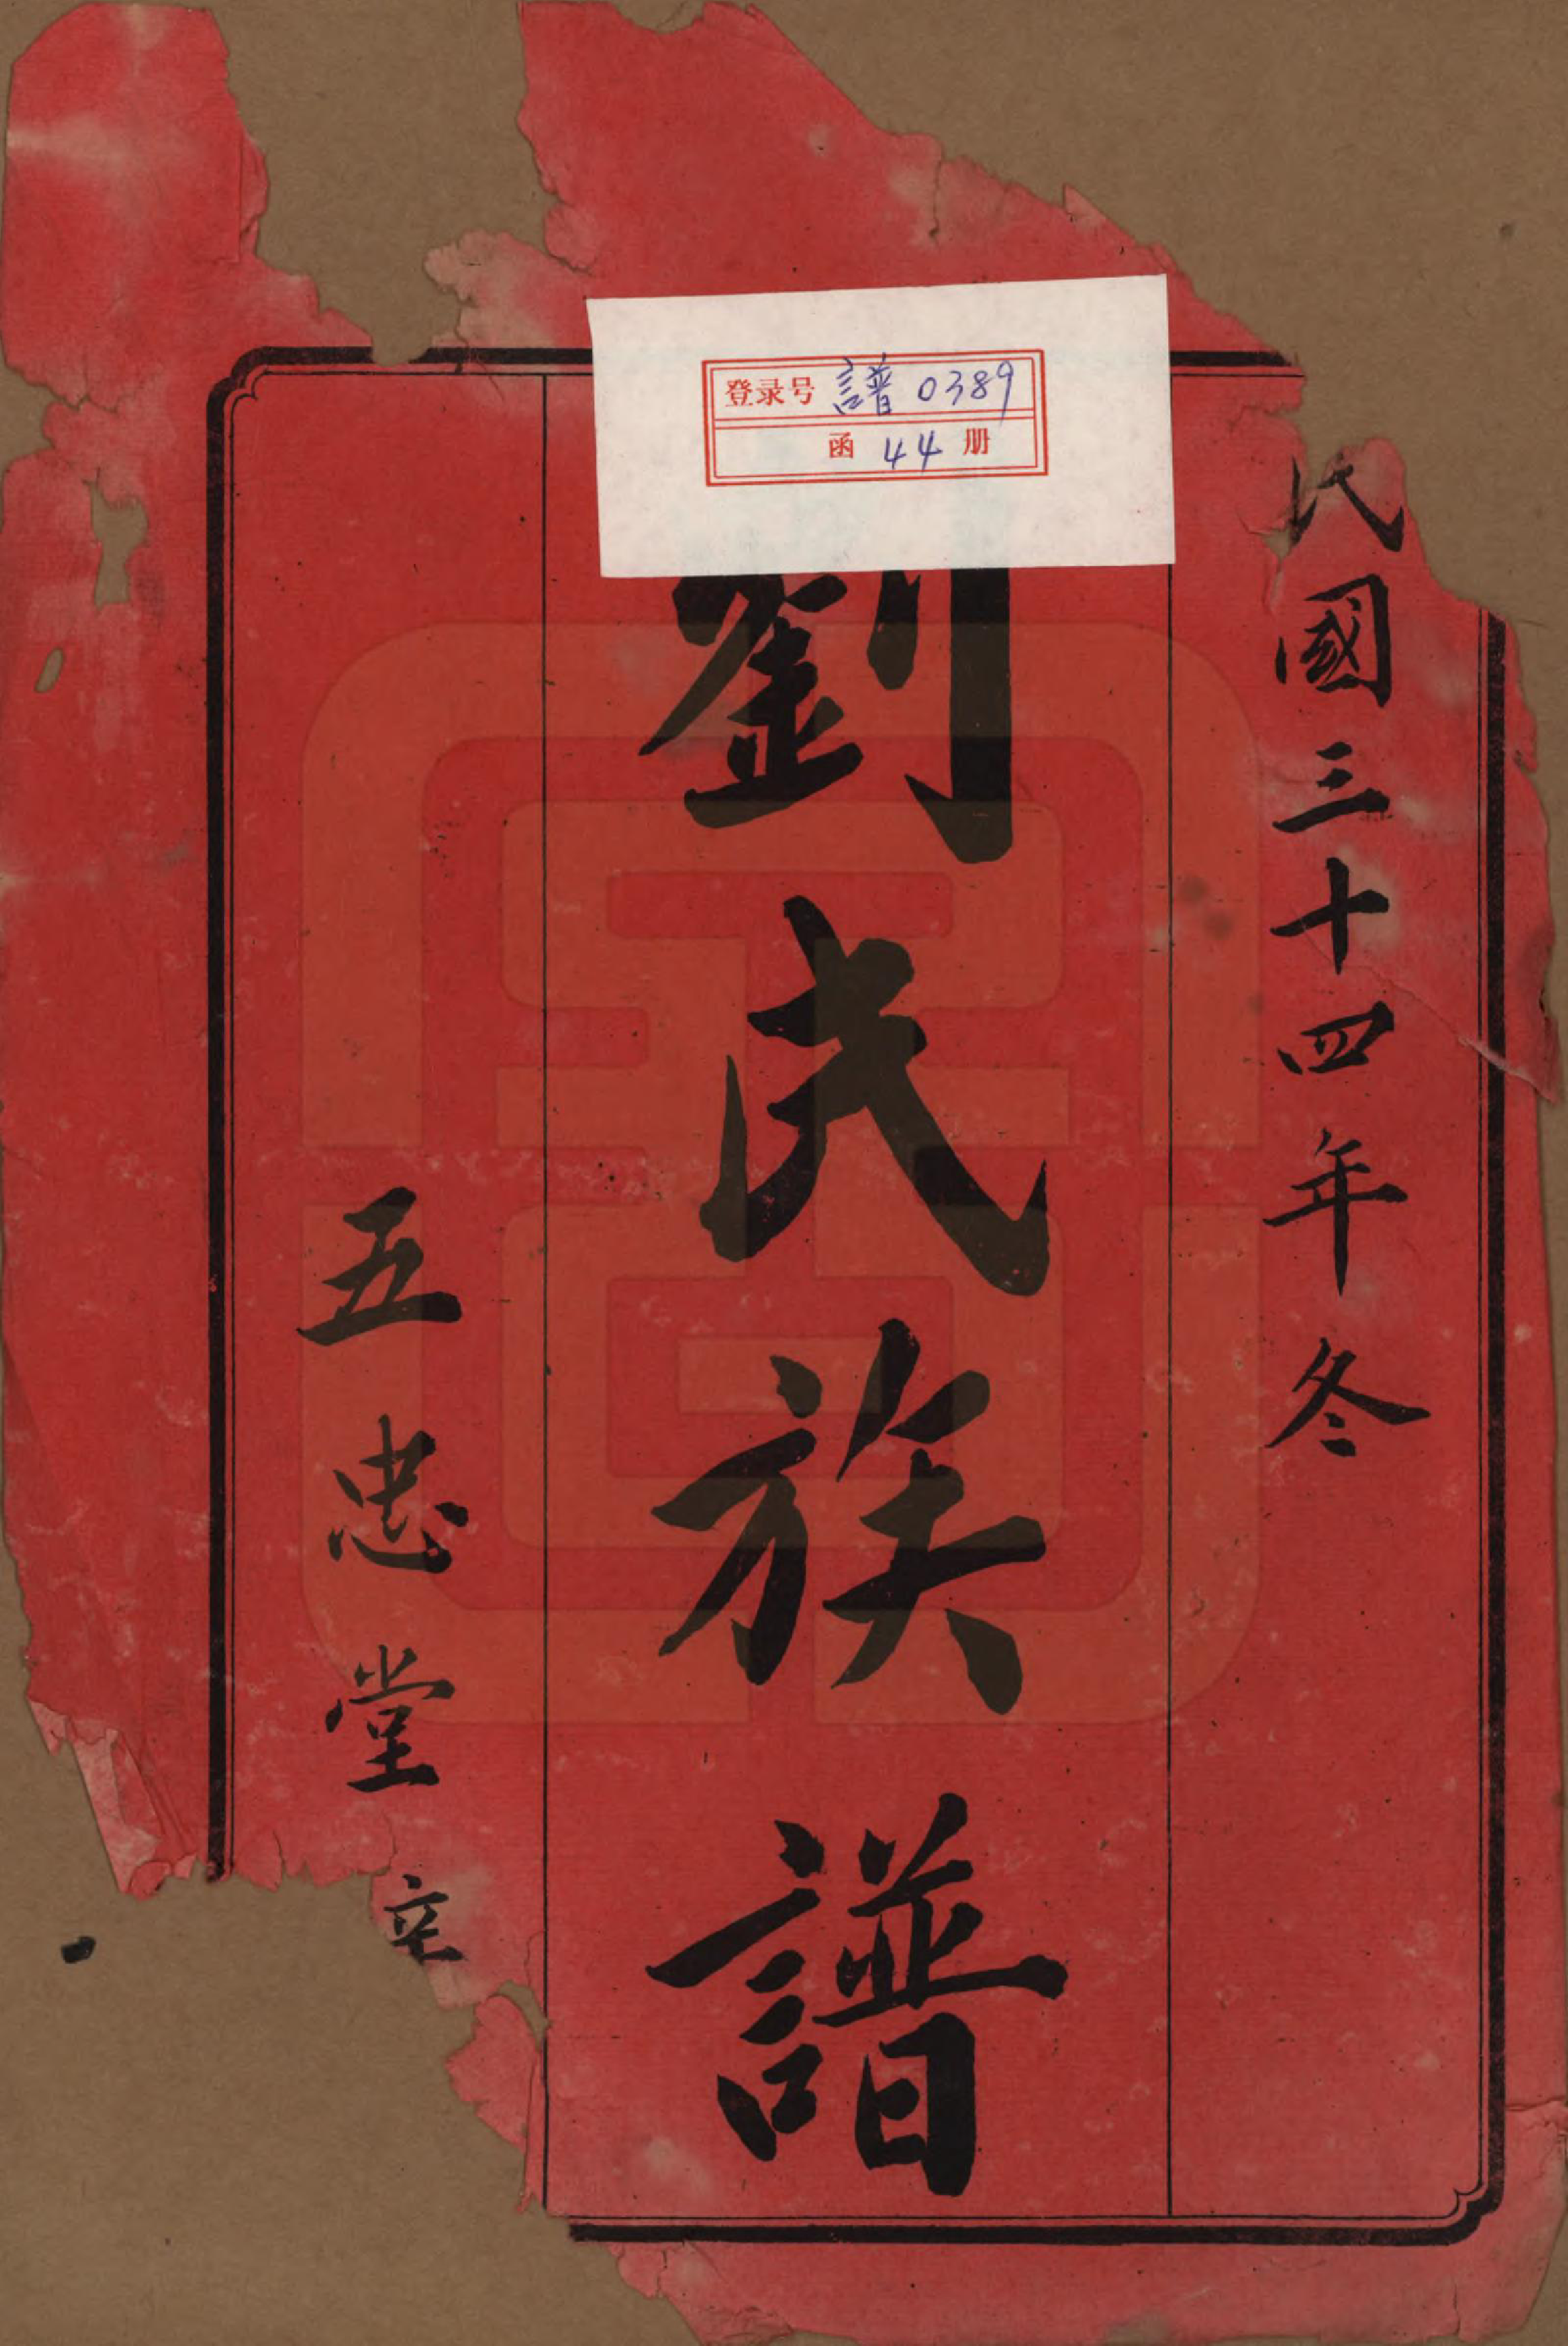 登录号 譜 0389
函 44 册
民國三十四年冬
劉氏族譜
五忠堂